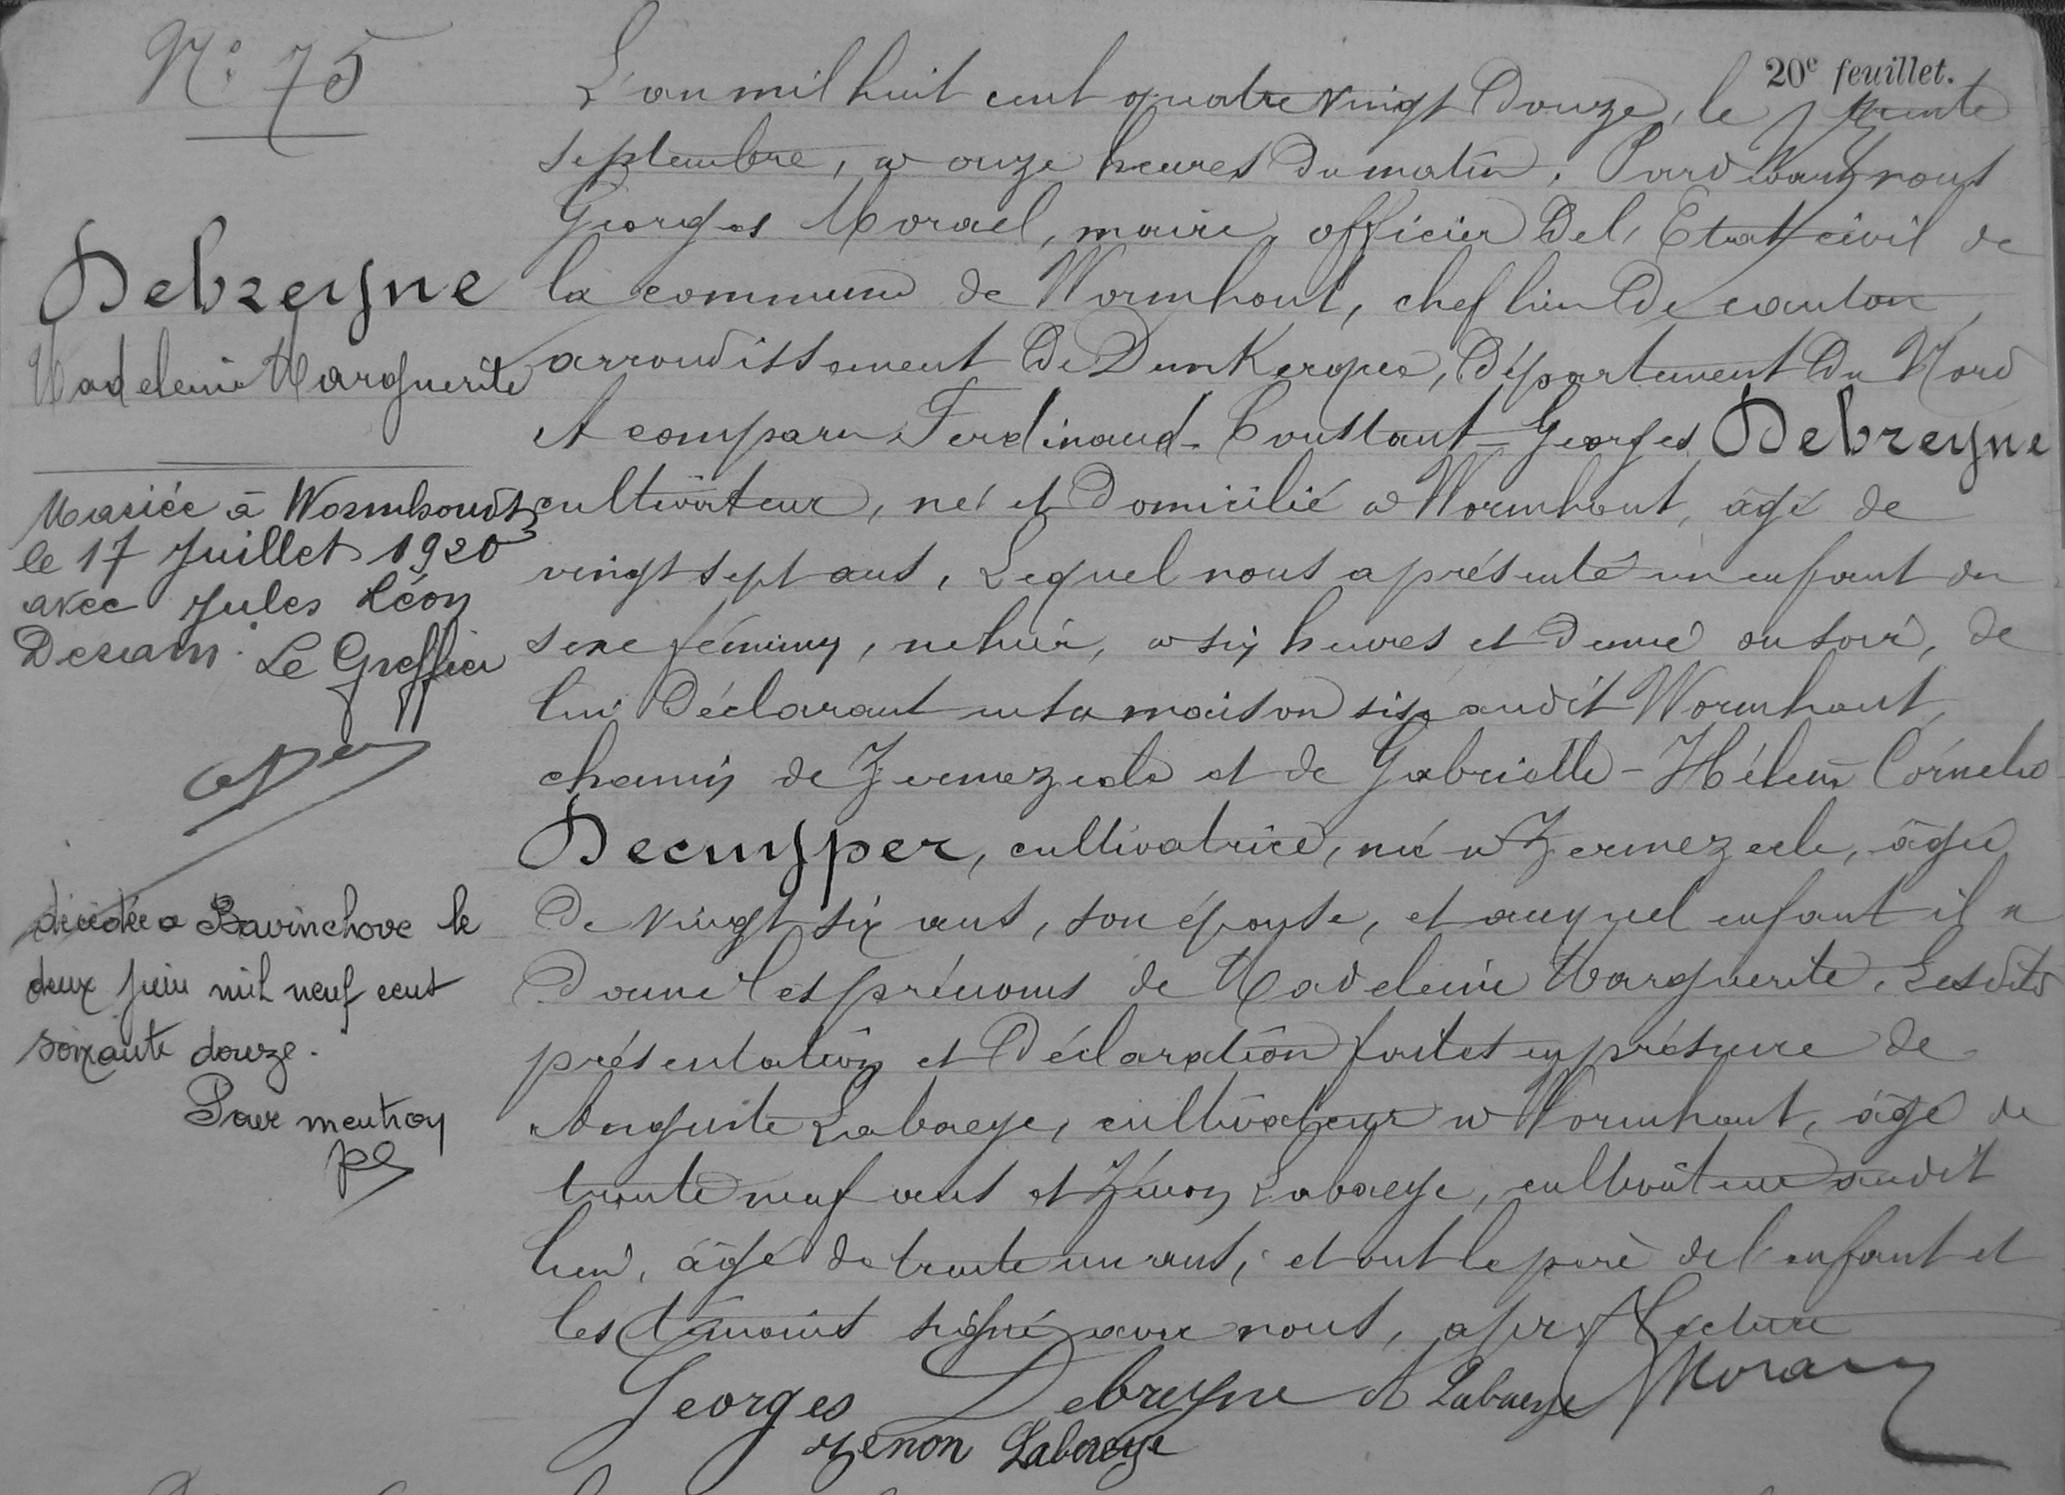 N° 75
20e feuillet.
L'an mil huit cent quatre vingt Douze, le trente
septembre, à onze heures du matin, Pardevant nous
Georges Morael, maire, officier de l'Etat civil de
la commune de Wormhout, chef lieu de canton
arrondissement de Dunkerque, département du Nord
A comparu Ferdinand-Constant-Georges Debreyne
cultivateur, né et domicilié à Wormhout, âgé de
vingt sept ans, Lequel nous a présenté un enfant du
sexe féminin, né hier, à six heures et demie du soir, de
lui Déclarant en sa maison sise audit Wormhout,
chemin de Zermezeele et de Gabrielle-Hélène Cornélie
Decuyper, cultivatrice, née à Zermezeele, âgée
de vingt six ans, son épouse, et auquel enfant il a
Donné les prénoms de Madeleine Marguerite. Lesdites
présentation et Déclaration faites en présence de
Auguste Labaeye, cultivateur à Wormhout, âgé de
trente neuf ans et Zénon Labaeye, cultivateur audit
lieu, âgé de trente un ans, et ont le père de l'enfant et
les témoins signé avec nous, après lecture
Georges Debreyne A Labaeye GMorael
Zénon Labaeye
Debreyne
Madeleine Marguerite
Mariée à Wormhoudt
le 17 Juillet 1920
avec Jules Léon
Decam. Le Greffier
décédée à Bavinchove le
deux juin mil neuf cent
soixante douze.
Pour mention